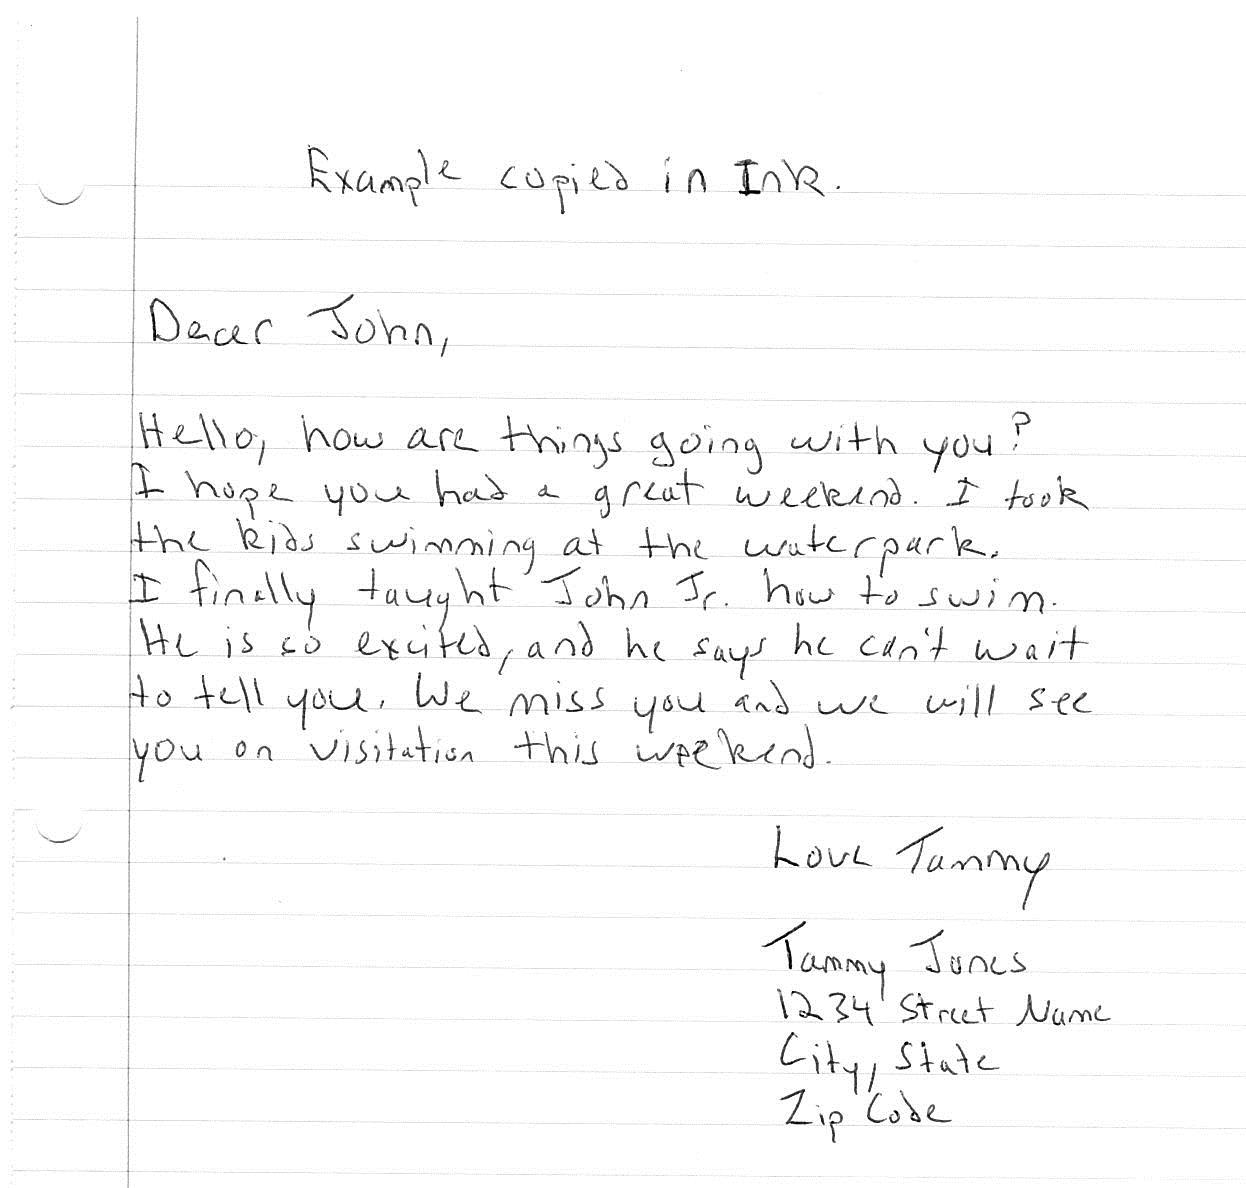 Example copied in Ink.
Dear John,
Hello, how are things going with you?
I hope you had a great weekend. I took
the kids swimming at the waterpark.
I finally taught John Jr. how to swim.
He is so excited, and he says he can't wait
to tell you. We miss you and we will see
you on visitation this weekend.
Love Tammy
Tammy Jones
1234 Street Name
City, State
Zip Code